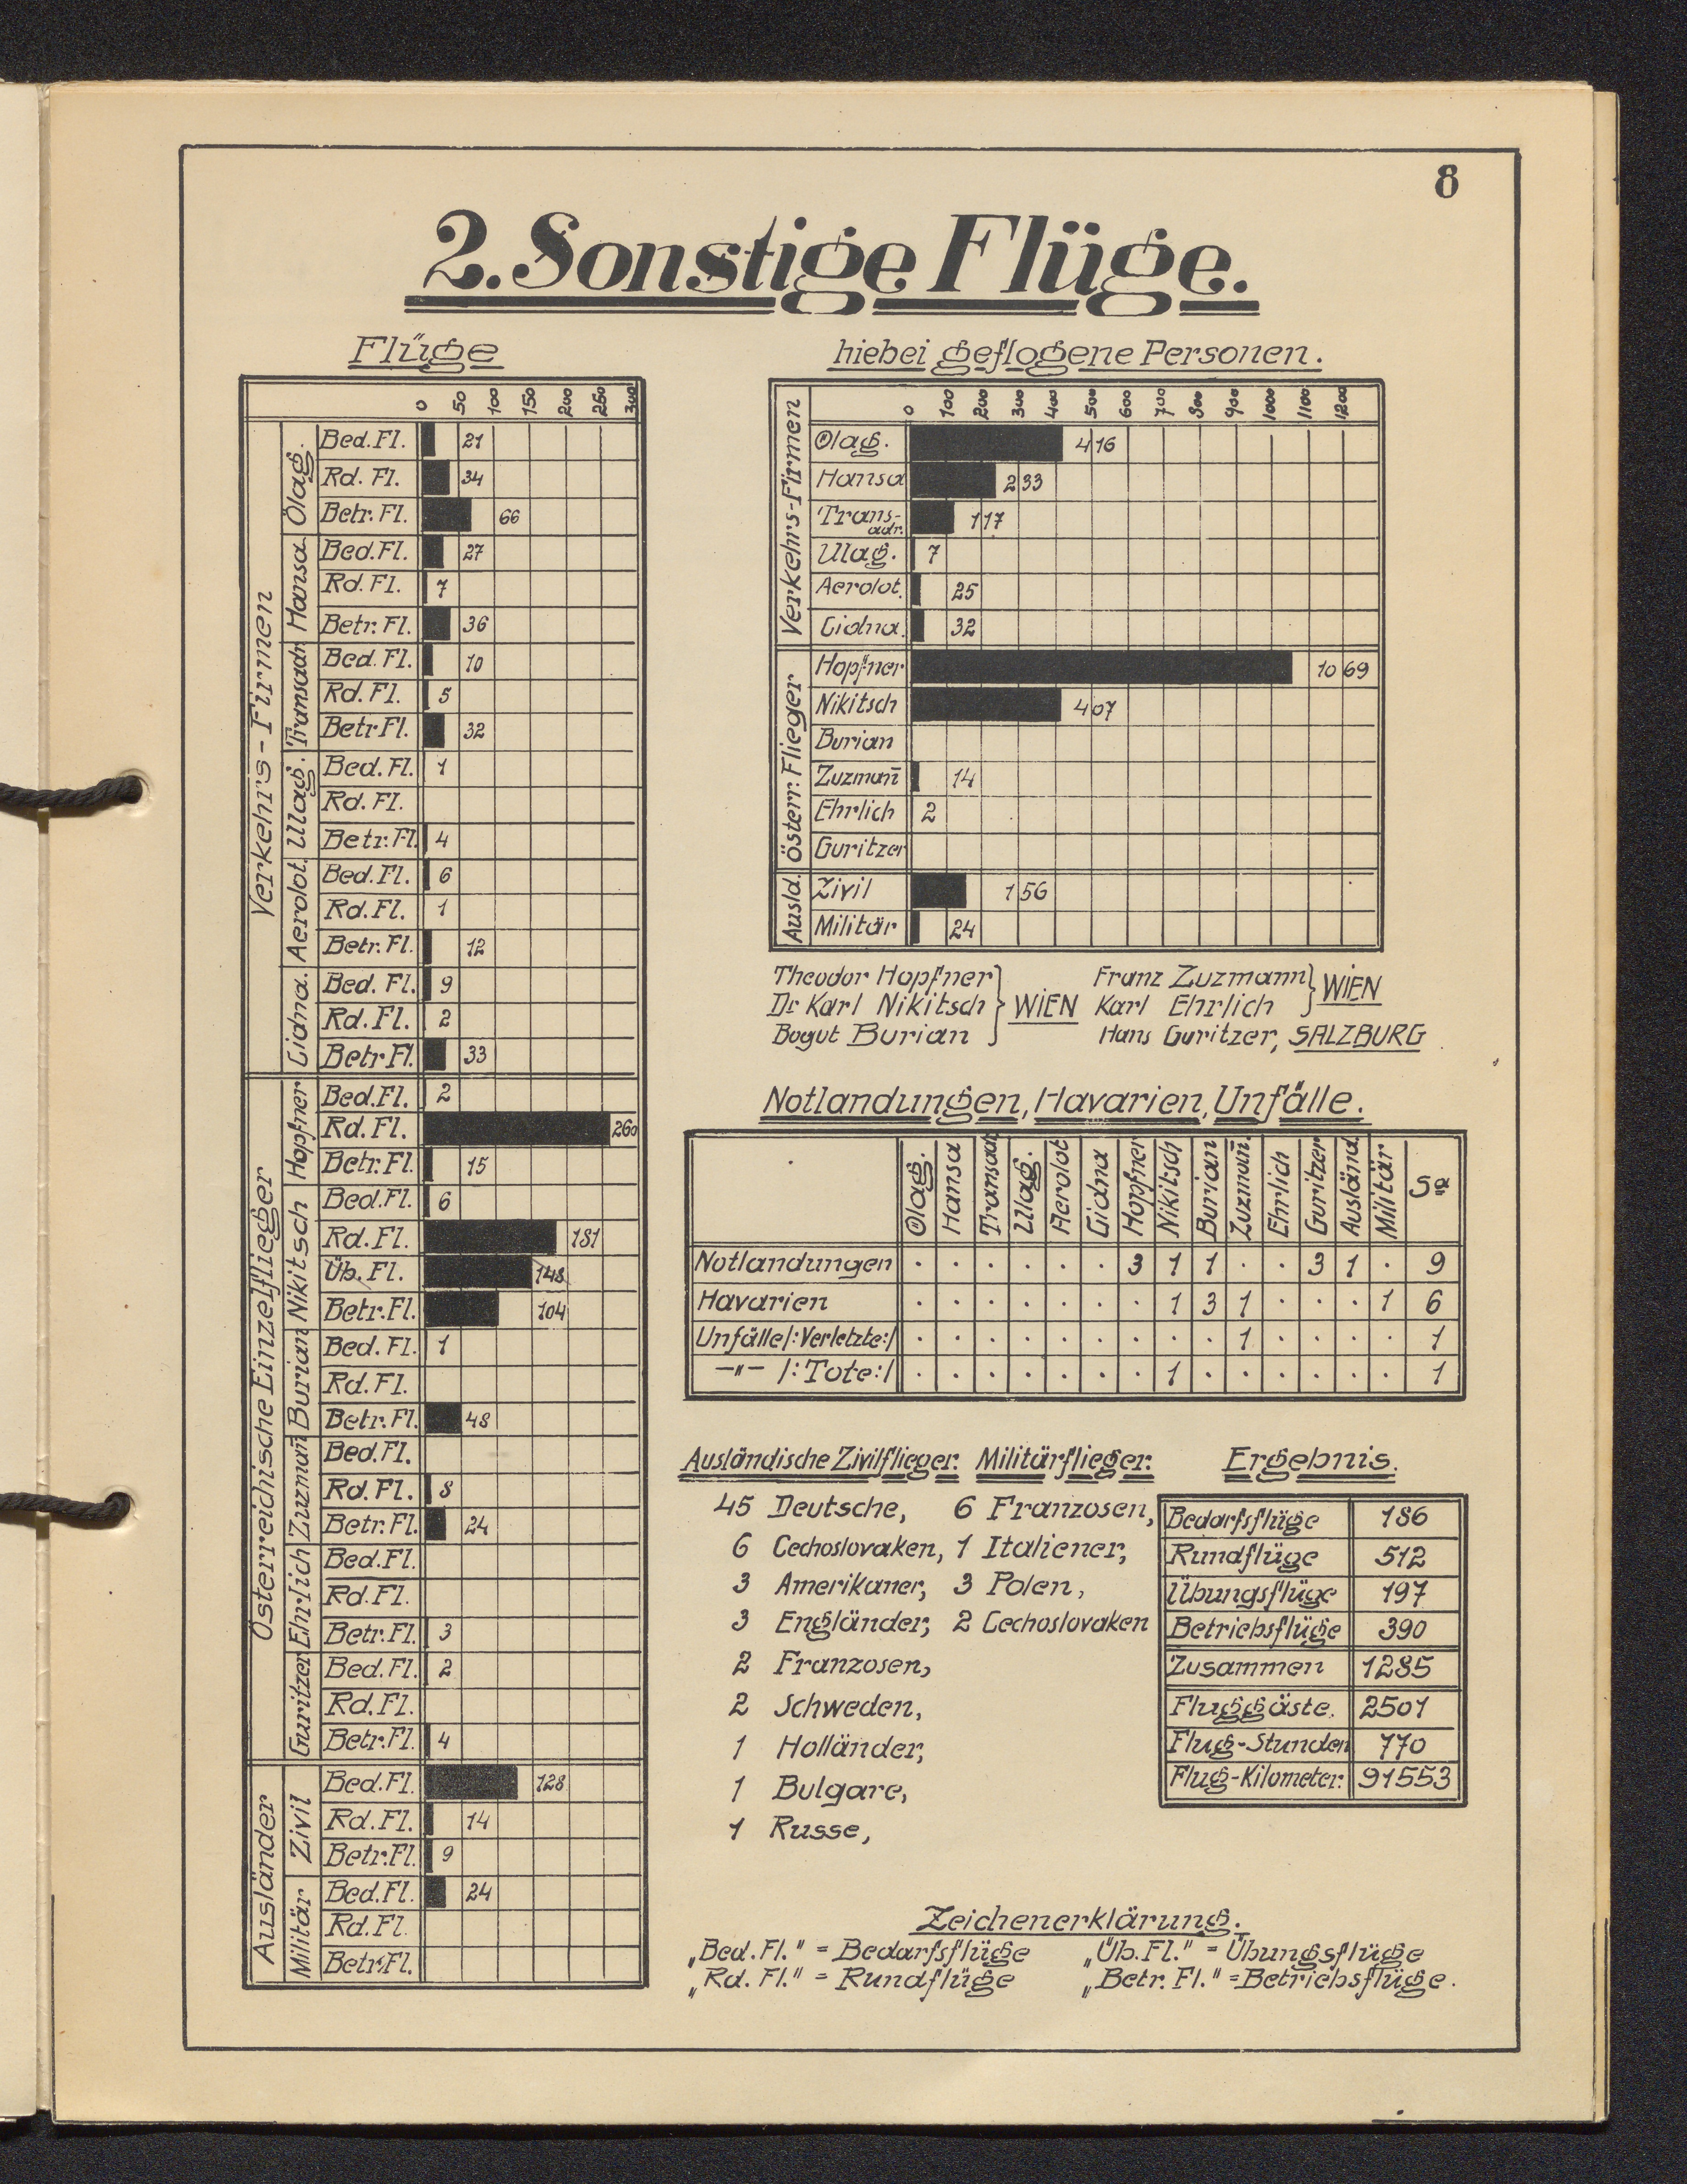 8
2. Sonstige Flüge.
Flüge
0 50 100 150 200 250 300
Verkehrs-Firmen
Ölag.
Bed. Fl. 21
Rd. Fl. 34
Betr. Fl. 66
Hansa
Bed. Fl. 27
Rd. Fl. 7
Betr. Fl. 36
Transadr.
Bed. Fl. 10
Rd. Fl. 5
Betr Fl. 32
Ulag.
Bed. Fl. 1
Rd. Fl.
Betr. Fl. 4
Aerolot.
Bed. Fl. 6
Rd. Fl. 1
Betr. Fl. 12
Cidna.
Bed. Fl. 9
Rd. Fl. 2
Betr Fl. 33
Österreichische Einzelflieger
Hopfner
Bed. Fl. 2
Rd. Fl. 260
Betr. Fl. 15
Nikitsch
Bed. Fl. 6
Rd. Fl. 181
Üb. Fl. 148
Betr. Fl. 104
Burian
Bed. Fl. 1
Rd. Fl.
Betr. Fl. 48
Zuzman̄
Bed. Fl.
Rd. Fl. 8
Betr. Fl. 24
Ehrlich
Bed. Fl.
Rd. Fl.
Betr. Fl. 3
Guritzer
Bed. Fl. 2
Rd. Fl.
Betr. Fl. 4
Ausländer
Zivil
Bed. Fl. 128
Rd. Fl. 14
Betr. Fl. 9
Militär
Bed. Fl. 24
Rd. Fl.
Betr. Fl.
hiebei geflogene Personen.
0 100 200 300 400 500 600 700 800 900 1000 1100 1200
Verkehrs-Firmen
Ölag. 416
Hansa 233
Trans-adr. 117
Ulag. 7
Aerolot. 25
Cidna. 32
Österr. Flieger
Hopfner 1069
Nikitsch 407
Burian
Zuzman̄ 14
Ehrlich 2
Guritzer
Ausld.
Zivil 156
Militär 24
Theodor Hopfner
Dr Karl Nikitsch WIEN
Bogut Burian
Franz Zuzmann
Karl Ehrlich WIEN
Hans Guritzer, SALZBURG
Notlandungen, Havarien, Unfälle.
Ölag. Hansa Transadr. Ulag. Aerolot Cidna Hopfner Nikitsch Burian Zuzman̄. Ehrlich Guritzer Ausländ. Militär Sa
Notlandungen . . . . . . 3 1 1 . . 3 1 . 9
Havarien . . . . . . . 1 3 1 . . . 1 6
Unfälle/:Verletzte:/ . . . . . . . . . 1 . . . . 1
-"- /:Tote:/ . . . . . . . 1 . . . . . . 1
Ausländische Zivilflieger:
45 Deutsche,
6 Cechoslovaken,
3 Amerikaner,
3 Engländer,
2 Franzosen,
2 Schweden,
1 Holländer,
1 Bulgare,
1 Russe,
Militärflieger:
6 Franzosen,
1 Italiener,
3 Polen,
2 Cechoslovaken
Ergebnis.
Bedarfsflüge 186
Rundflüge 512
Übungsflüge 197
Betriebsflüge 390
Zusammen 1285
Fluggäste. 2501
Flug-Stunden 770
Flug-Kilometer: 91553
Zeichenerklärung.
„Bed. Fl." = Bedarfsflüge „Üb. Fl." = Übungsflüge
„Rd. Fl." = Rundflüge „Betr. Fl." = Betriebsflüge.